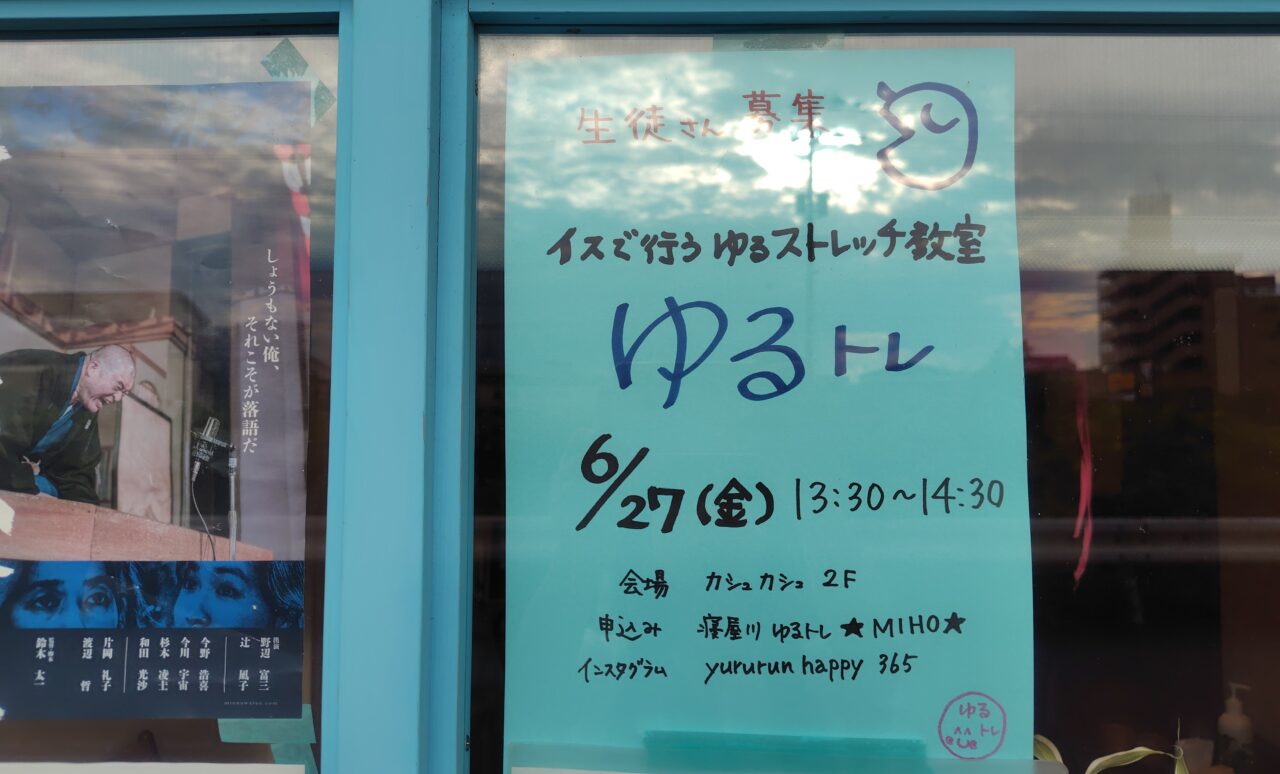 しょうもない俺、
それこそが落語だ
出演
野辺 富三
辻 凪子
今野 浩喜
今川 宇宙
杉本 凌士
和田 光沙
片岡 礼子
渡辺 哲
鈴木 太一
生徒さん募集
イスで行う ゆるストレッチ教室
ゆるトレ
6/27(金) 13:30~14:30
会場 カシュカシュ 2F
申込み 寝屋川 ゆるトレ ★MIHO★
インスタグラム yururun happy 365
ゆる
トレ